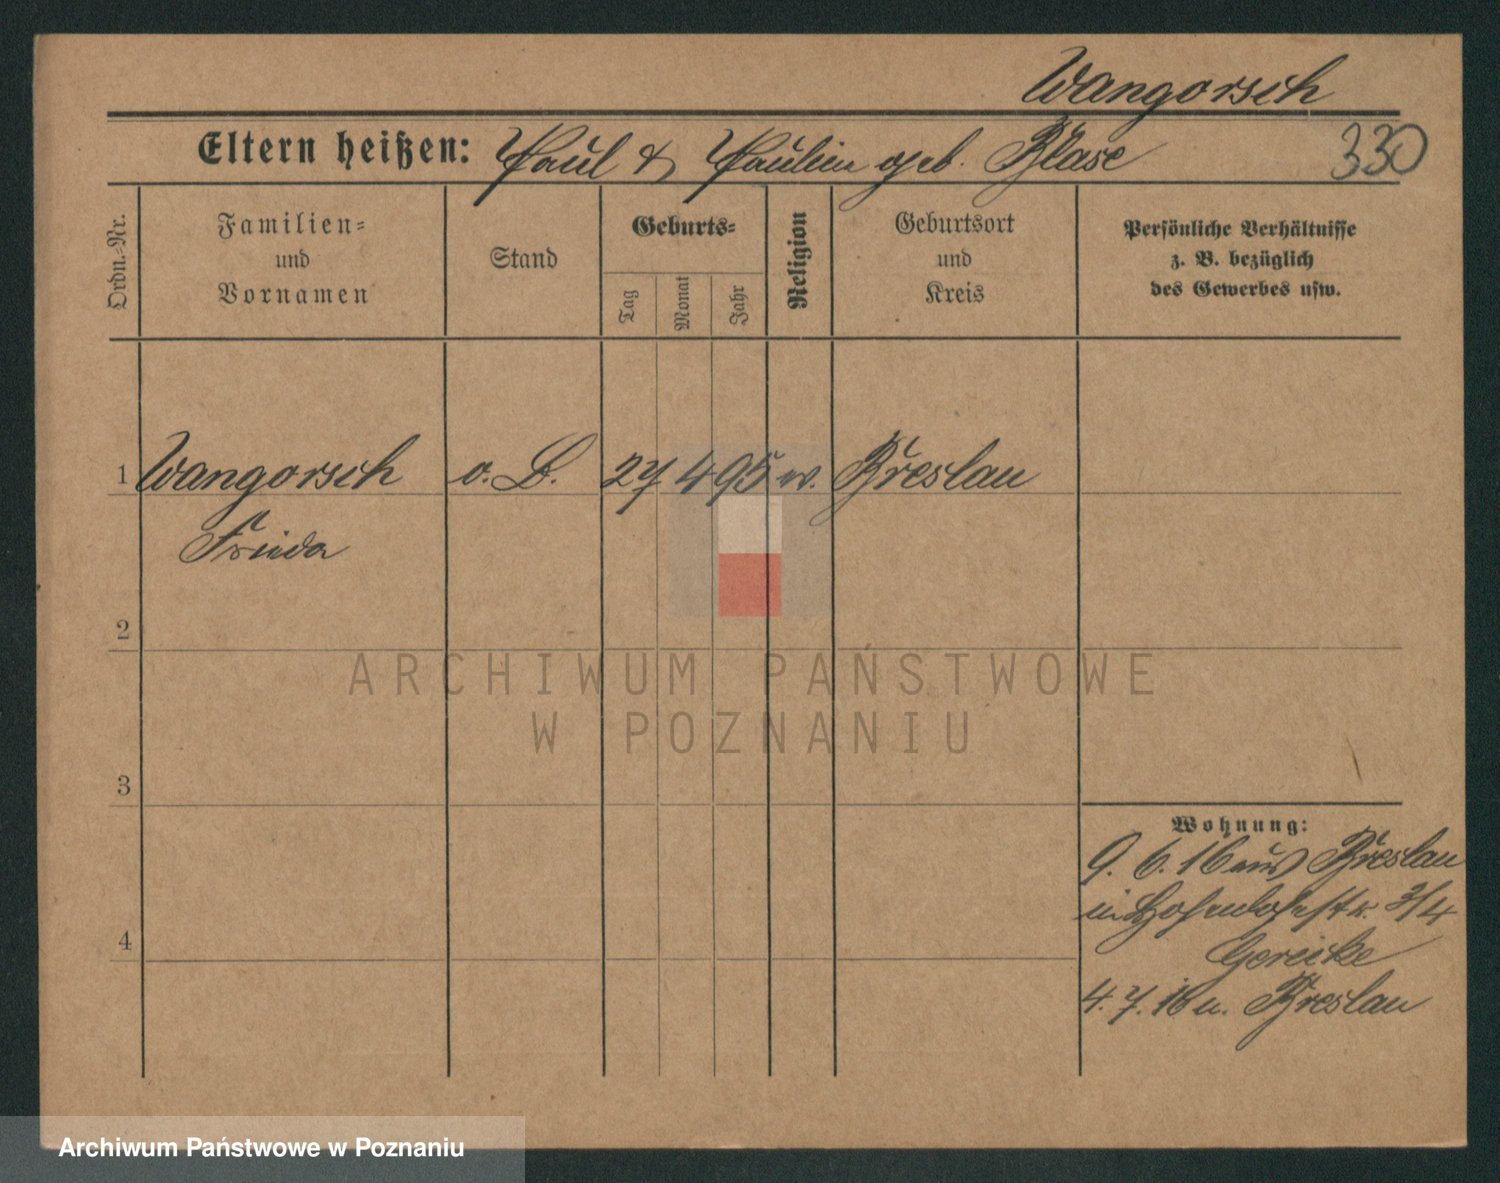 Wangorsch
Eltern heißen: Paul & Paulin geb. Blase 330
Ordn.=Nr.
Familien=
und
Vornamen
Stand
Geburts=
Tag
Monat
Jahr
Religion
Geburtsort
und
Kreis
Persönliche Verhältnisse
z. B. bezüglich
des Gewerbes usw.
1 Wangorsch o. B. 27 4 95 ev. Breslau
Frieda
2
3
4
Wohnung:
9. 6. 16 aus Breslau
in Hohenlohestr. 3/4
Gericke
4. 7. 16 n. Breslau
ARCHIWUM PAŃSTWOWE
W POZNANIU
Archiwum Państwowe w Poznaniu